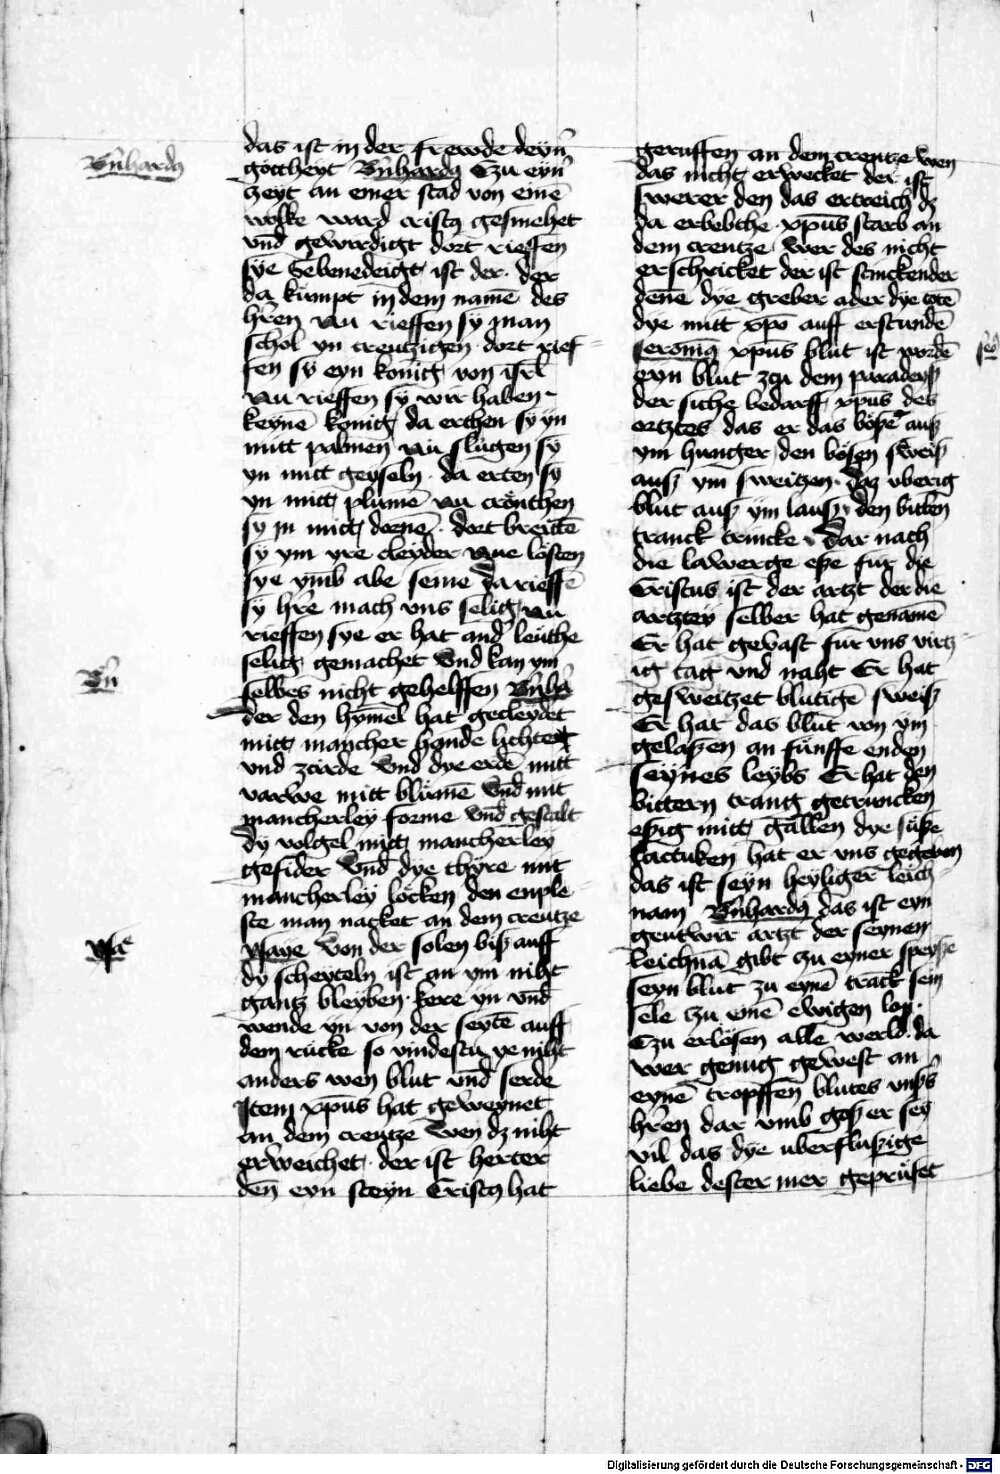 Bn̄hardꝯ
das ist in der frewde deyn̄
gottheyt Bn̄hardꝯ Czu eyn̄
zeyt an einer stad von einē
volke ward cristꝯ gesmehet
vnd̄ gewirdigt dort rieffen
sye Gebenedeigt ist der· der
da kumpt in dem namē des
hr̄en nu rieffen sy man
schol yn creutzigen· dort rief⸗
fen sy eyn konig von isrl̄
nu rieffen sy wir haben·
keynē konig da erthen sy yn
mitt palmen nu slugen sy
yn mitt geyseln· da erten sy
yn mitt plumē nu crönthen
sy in mitt dornē· dort breittē
sy ym yre cleyder nue lösten
sye ymb abe seine da rieffē
sy hr̄e mach vns selig nu
rieffen sye er hat and̓ leuthe
selig gemachet Vnd kan ym
Bn̄
selbes nicht gehelffen Bn̄hꝯ
der den hymel hat gecleydet
mitt mancher hande lichte
vnd zcirde Vnd dye erdē mitt
varwe mitt blumē Vnd̄ mit
mancherley forme vnd̄ gestalt
dy volgel mitt mancherley
gefider Vnd̄ dye thyre mit
mancherley löcken den enplo⸗
ste man nacket an dem creutze
ysaie
ysaye Von der solen biß auff
dy scheyteln ist an ym niht
gantz bleyben· kere yn vnd̄
wende yn von der seytē auff
dem rücke so vindestu ye niht
anders wen blut vnd̄ serde
Item xp̄us hat geweynet
an dem creutze Wen dz niht
erweichet· der ist herter
den̄ eyn steyn Cristꝯ hat
geruffen an dem creutze wen
das nicht erwecket der ist
swerer den das ertreich dz
da erbebthe· xp̄us starb an
dem creutze Wer des nicht
erschricket der ist stinckender
denē dye greber ader dye totē
dye mitt xp̄o auff erstundē
Jeronimꝯ xp̄us blut ist wordē
eyn blut zcu dem paradeyß
der siche bedarff xp̄us des
ertztes das er das bößē auß
ym hunger den bösen sweiß
auß ym sweitzen· Daz vberig
blut auß ym lauß den bittn̄
tranck trincke· Dar nach
die lawerge eße fur die
Cristus ist der artzt der die
artztey selber hat genamē
Er hat gevast fur vns virtz⸗
ig tag vnd naht Er hat
gesweitzet blutigē sweiß
Er hat das blut von ym
gelaßen an funffe enden
seynes leybs Er hat den
bittern trang getruncken
eßig mitt gallen dye süße
lactuken hat er vns gegeben
das ist seyn heyliger leich⸗
nam Bn̄hardꝯ das ist eyn
grutwir artzt der seynen
leichnā gibt zu eyner speyße
seyn blut zu eynē tranck sein
sele zu einē ewigen lon·
Czu erlösen alle werld· da
wer genug gewest an
eynē tropffen blutes vnßs
hr̄en dar vmb goß er sey
vil das dye uberflußige
liebe dester mer geprufet